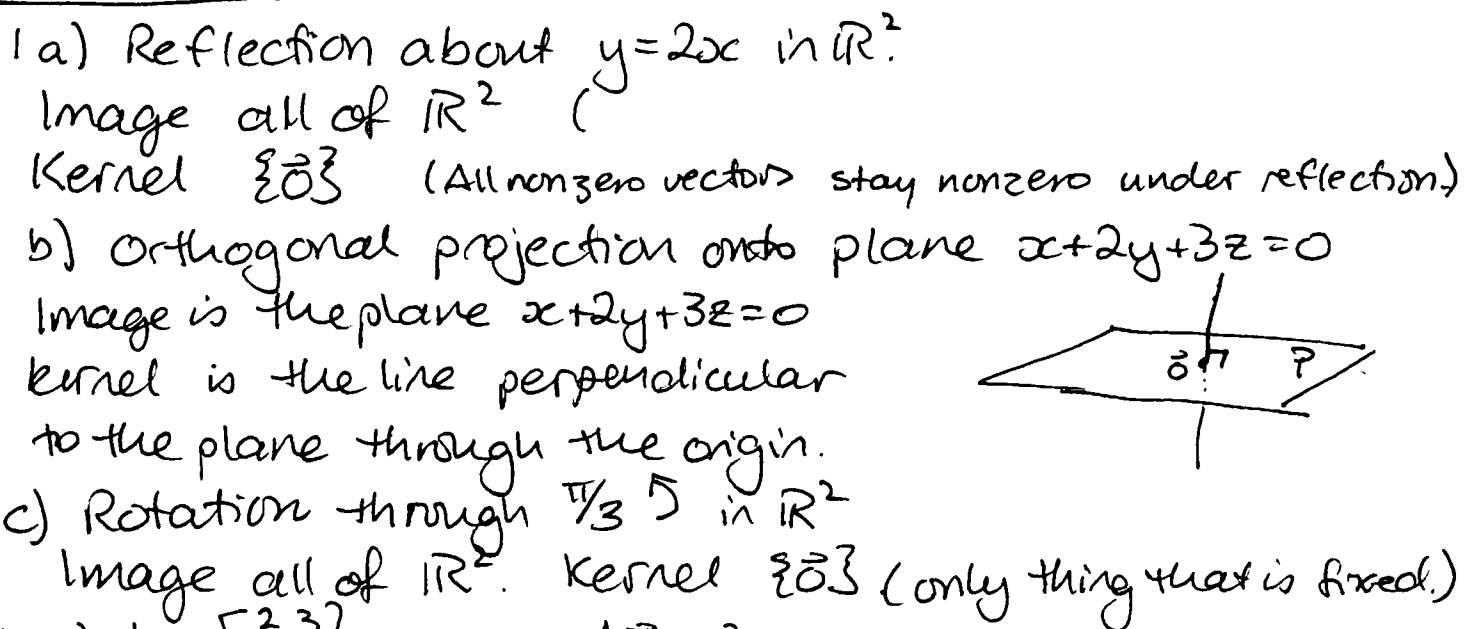 1a) Reflection about y=2x in ℝ².
Image all of ℝ² (
Kernel {0⃗} (All nonzero vectors stay nonzero under reflection.)
b) Orthogonal projection onto plane x+2y+3z=0
Image is the plane x+2y+3z=0
kernel is the line perpendicular
0⃗ P
to the plane through the origin.
c) Rotation through π/3 ↺ in ℝ²
Image all of ℝ². Kernel {0⃗} (only thing that is fixed.)
[2 3]